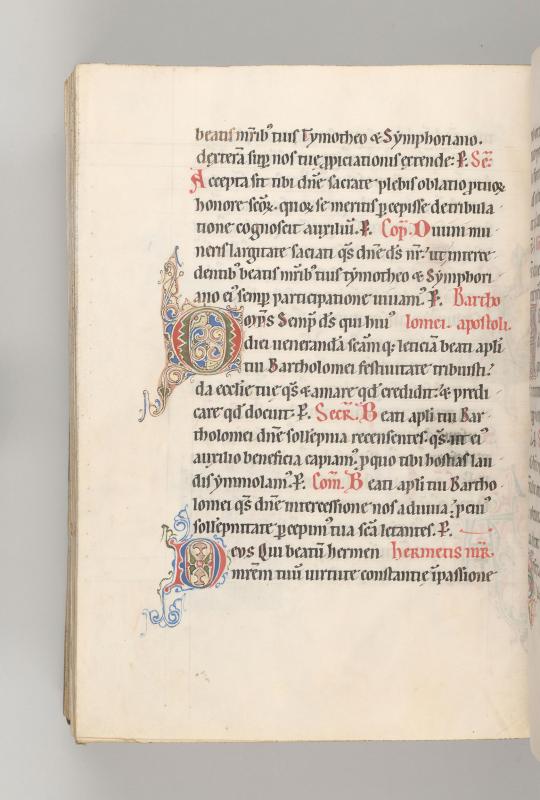 beatis mr̄ib⁹ tuis Tymotheo & Symphoriano.
dexterā sup nos tuę ppiciationis extende: P. Sec̄.
Accepta sit tibi dn̄e sacrate plebis oblatio p tuoꝝ
honore sc̄oꝝ. quoꝝ se meritis pcepisse de tribula
tione cognoscit auxiliū. P. Com̄. Diuini mu
neris largitate saciati qs̄ dn̄e ds̄ nr̄: ut interce
dentib⁹ beatis mr̄ib⁹ tuis tymotheo & Symphori
ano ei⁹ semp participatione uiuam⁹. P. Bartho
Omps̄ Semp̄ ds̄ qui hui⁹ lomei. apostoli.
diei uenerandā sc̄amq; leticiā beati apl̄i
tui Bartholomei festiuitate tribuisti:
da ecclie tue qs̄ & amare qd̄ credidit: & predi
care qd̄ docuit. P. Secr̄. Beati apl̄i tui Bar
tholomei dn̄e sollēpnia recensentes. qs̄. ut ei⁹
auxilio beneficia capiam⁹. p quo tibi hostias lau
dis ymmolam⁹. P. Com̄. Beati apl̄i tui Bartho
lomei qs̄ dn̄e intercessione nos adiuua: p cui⁹
sollēpnitate pcepim⁹ tua sc̄a letantes. P.
Deus Qui beatū hermen hermetis mr̄.
mr̄em tuū uirtute constantię ī passione